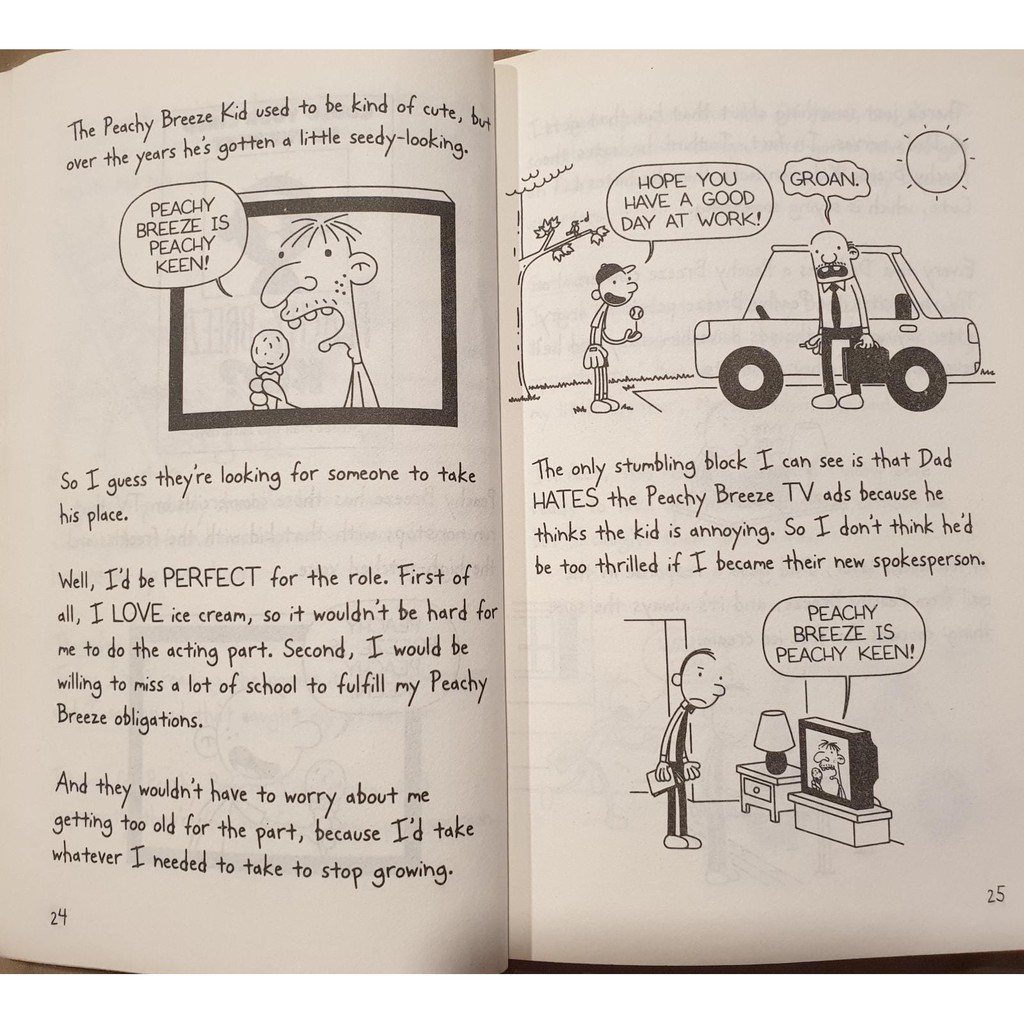 The Peachy Breeze Kid used to be kind of cute, but
over the years he's gotten a little seedy-looking.
PEACHY
BREEZE IS
PEACHY
KEEN!
So I guess they're looking for someone to take
his place.
Well, I'd be PERFECT for the role. First of
all, I LOVE ice cream, so it wouldn't be hard for
me to do the acting part. Second, I would be
willing to miss a lot of school to fulfill my Peachy
Breeze obligations.
And they wouldn't have to worry about me
getting too old for the part, because I'd take
whatever I needed to take to stop growing.
24
HOPE YOU
HAVE A GOOD
DAY AT WORK!
GROAN.
The only stumbling block I can see is that Dad
HATES the Peachy Breeze TV ads because he
thinks the kid is annoying. So I don't think he'd
be too thrilled if I became their new spokesperson.
PEACHY
BREEZE IS
PEACHY KEEN!
25